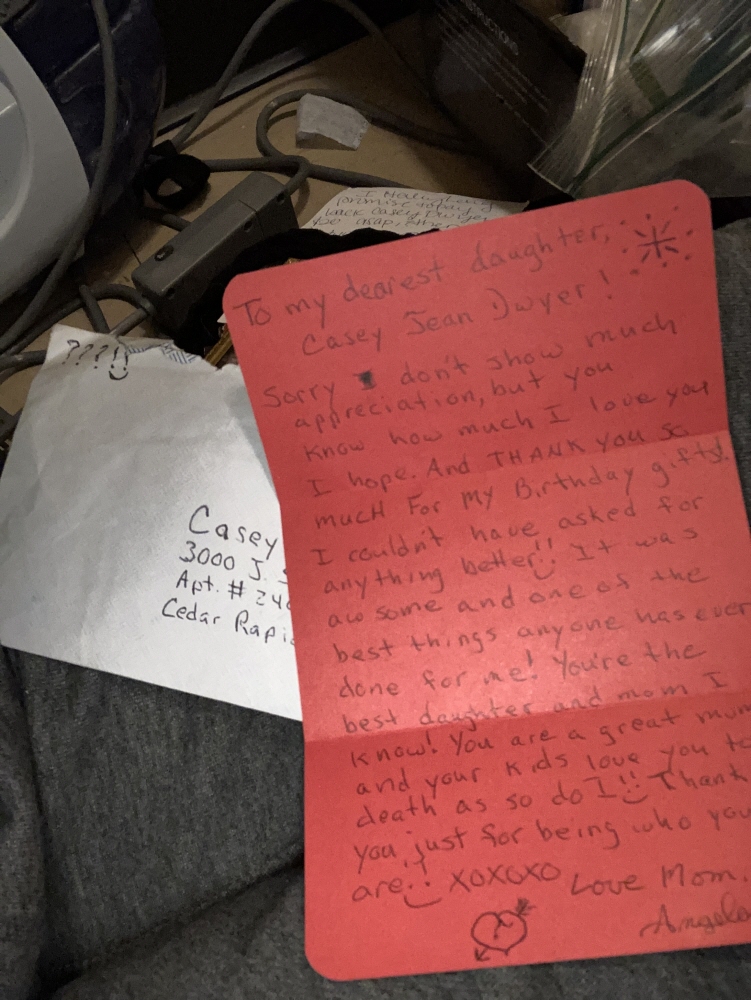 INSTRUCTIONS
I
promise to paid
back Casey Dwyer
you asap,
To my dearest daughter,
Casey Jean Dwyer!
Sorry I don't show much
appreciation, but you
know how much I love you
I hope. And THANK you so
mucH For My Birthday gifts!
I couldn't have asked for
anything better!! It was
aw some and one of the
best things anyone has ever
done for me! You're the
best daughter and mom I
know! You are a great mum
and your kids love you to
death as so do I!! Thank
you just for being who you
are!! XOXOXO Love Mom,
Angela
???!!
Casey
3000 J.
Apt. # 24
Cedar Rapi